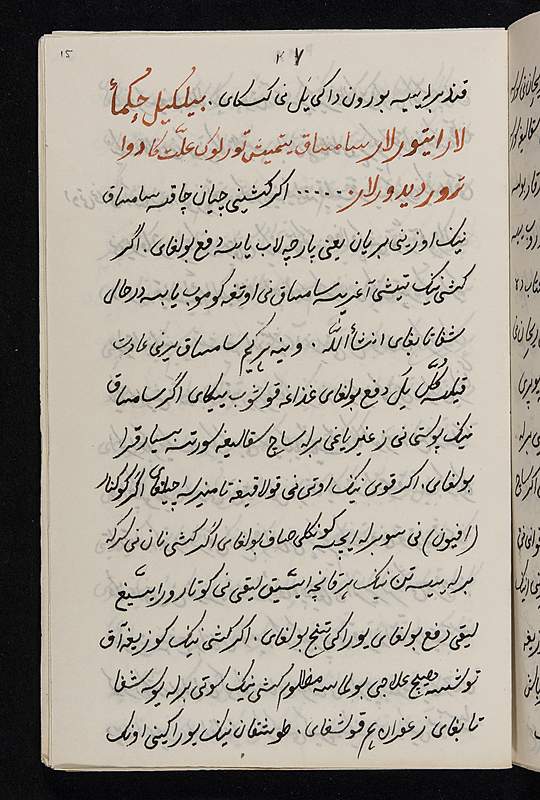 15
۲۷
قند برله ییسه بورون داکی یل نی کیسکای . بیلکیل حکمأ
لار ایتورلار سامساق یتمیش تورلوک علّت کا دوا
ترور دیدورلار ...... اکر کشینی چیان چاقسه سامساق
نیک اوزینی بریان یعنی پارچه لاب یابسه دفع بولغای . اکر
کشی نیک تیشی آغریسه سامساق نی اوتغه کوموب یابسه درحالی
شفا تابغای انشأالله . وینه هرکیم سامساق بیرنی عادت
قیلسه کُلّ یَل دفع بولغای غذاغه قوشوب ییکای اکر سامساق
نیک پوستی نی زغیر یاغی برله ساچ سقالیغه سورتسه بسیار قرا
بولغای . اکر قوی نیک اوتی نی قولاقیغه تامیزسه اچیلغای اکر کوکنار
(افیون) نی سو برله ایچسه کونکلی صاف بولغای اکر کشی نان نی سرکه
برله ییسه تن نیک هرقانچه ایسّیق لیقی نی کوتارور ایسّیغ
لیقی دفع بولغای یوراکی تینج بولغای . اکر کشی نیک کوزیغه آق
توشسه هیچ علاجی بولماسه مظلوم کشی نیک سوتی برله یوسه شفا
تابغای زعفران هم قوشغای . طوشقان نیک یوراکینی اونک